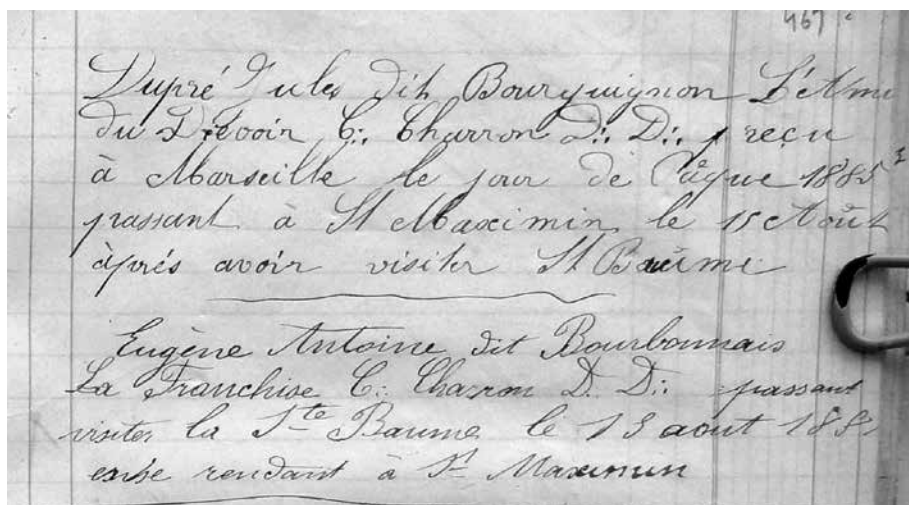 467
Dupré Jules dit Bourguignon L'Ami
du Devoir C∴ Charron D∴ D∴ reçu
à Marseille le jour de Pâque 1885
passant à St Maximin le 15 Août
àprés avoir visiter St Baume
Eugène Antoine dit Bourbonnais
La Franchise C∴ Charron D. D∴ passant
visiter la Ste Baume le 13 aout 188
rendant à St Maximin